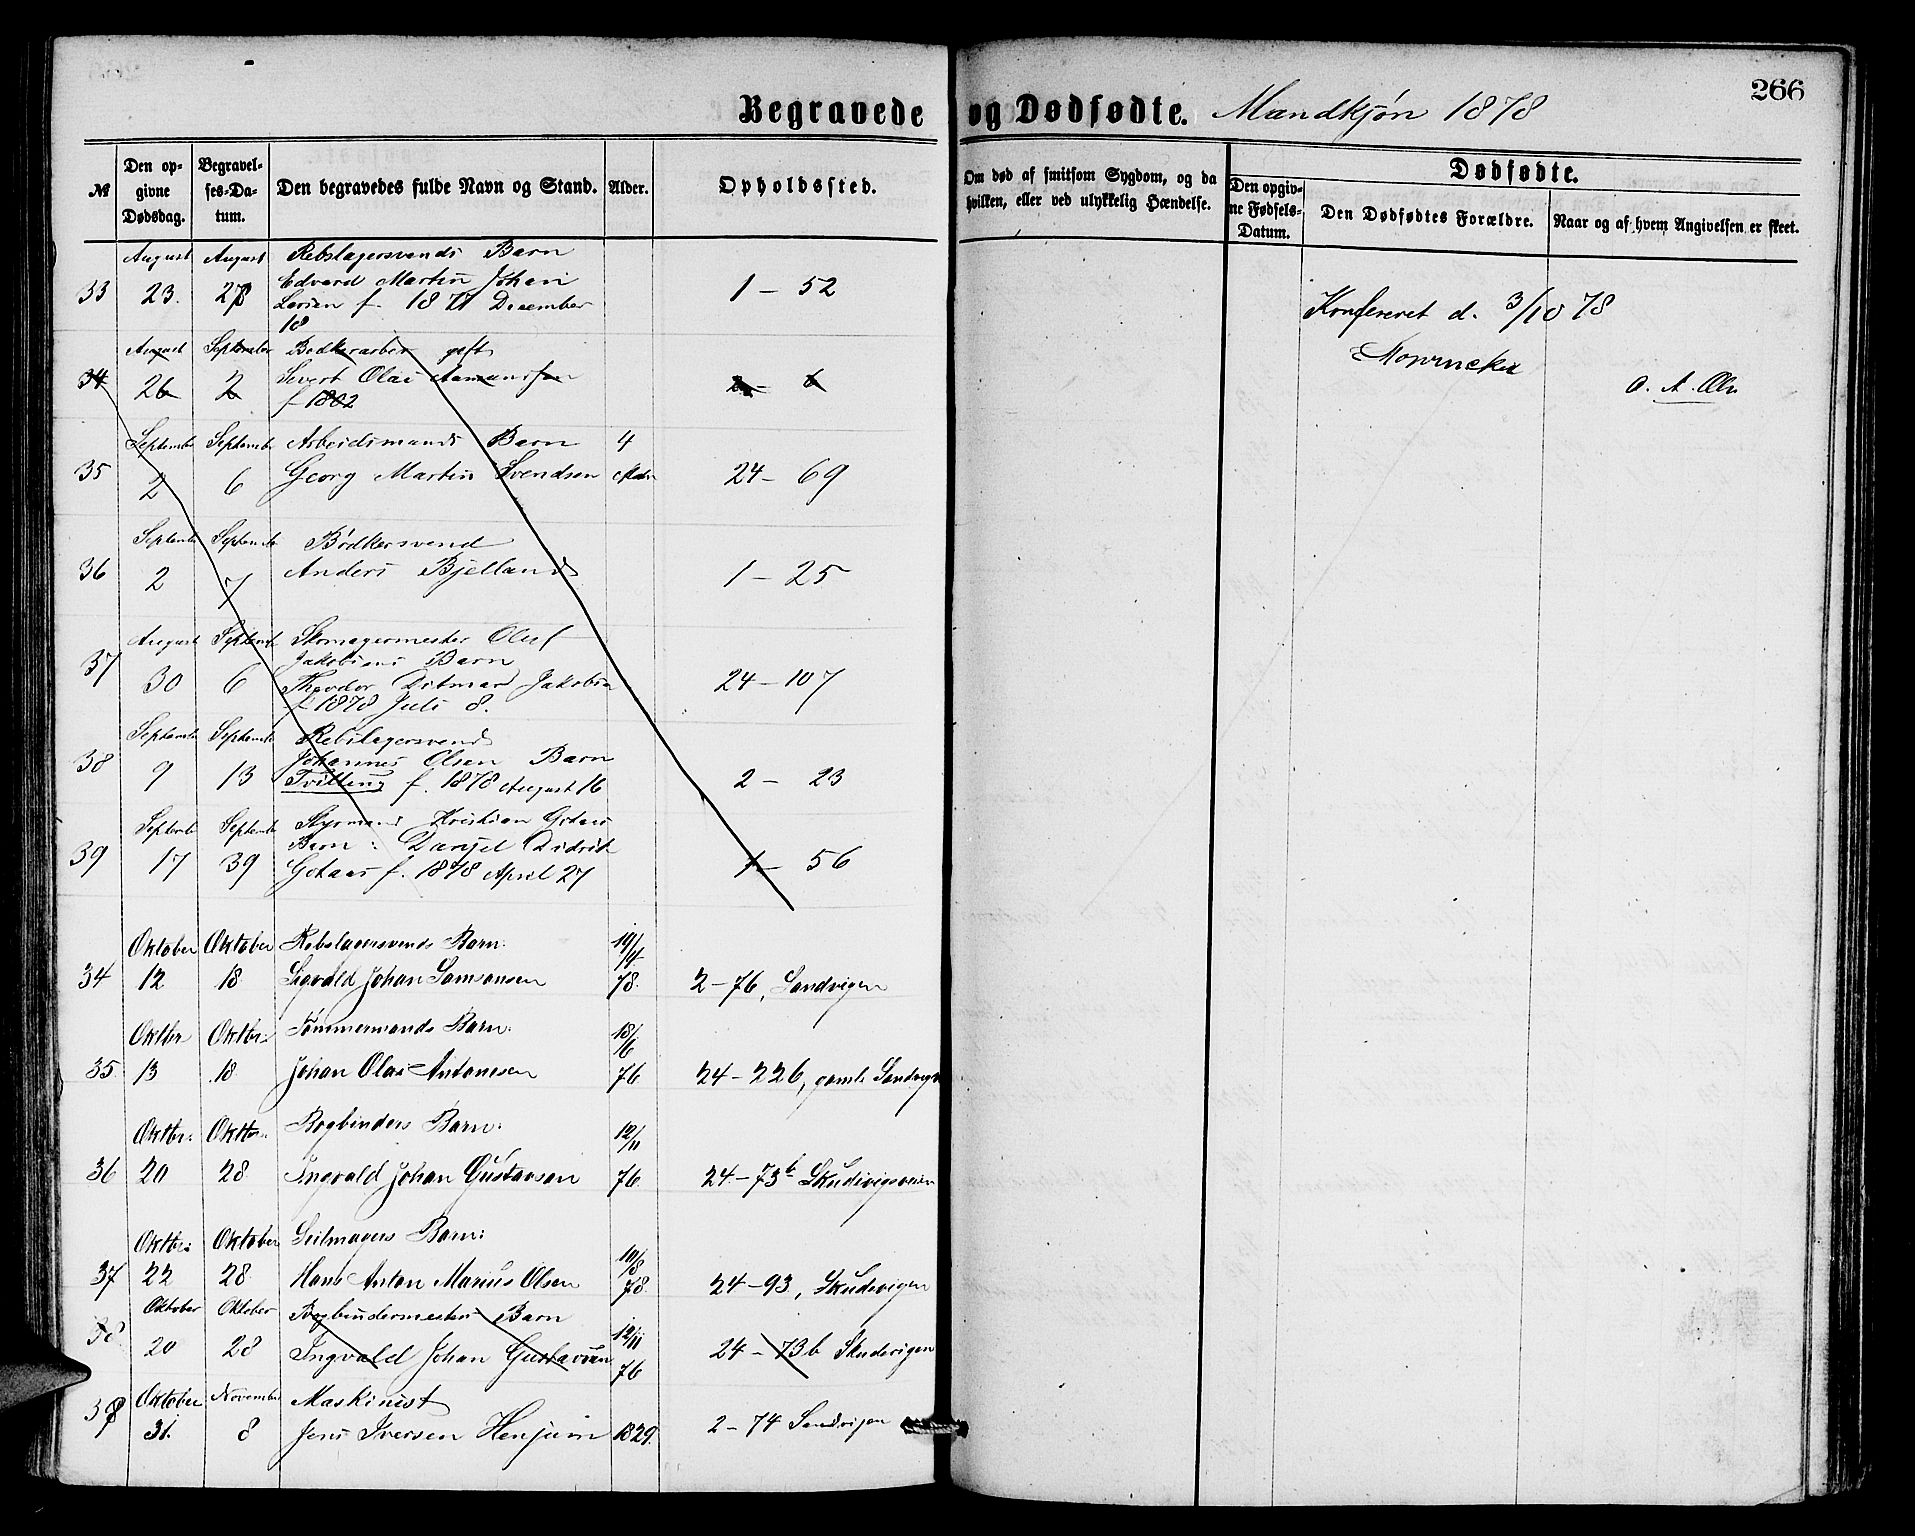 266
Begravede og Dødfødte. Mandkjøn 1878
№
Den op-
givne
Dødsdag.
Begravel-
ses-Da-
tum.
Den begravedes fulde Navn og Stand.
Alder.
Opholdssted.
Om død af smitsom Sygdom, og da
hvilken, eller ved ulykkelig Hændelse.
Dødfødte.
Den opgiv-
ne Fødsels-
Datum.
Den Dødfødtes Forældre.
Naar og af hvem Angivelsen er skeet.
August August Rebslagersvends Barn
33 23. 28 Edvard Martin Johan 1 – 52
Larsen f. 1877 December
18
Konfereret d. 3/10 78
O. A. Ols
August September Bødkerarbei gift
34 26 2 Sivert Olai Aamundsen 2 – 6
f 1802
September September Arbeidsmands Barn 4
35 2 6 Georg Martin Svendsen Mdr 24 – 69
Septembr Septembr Bødkersvend
36 2 7 Anders Bjelland 1 – 25
August Septembr Skomagermester Oluf
Jakobsens Barn
37 30 6 Theodor Ditmar Jakobsen 24 – 107
f 1878 Juli 8.
Septembr Septembr Rebslagersvend
38 9 13 Johannes Olsen Barn 2 – 23
Tvilling f. 1878 August 16
Septembr Septembr Styrmand Kristian Gotaas
Barn: Danjel Didrik
39 17 39 Gotaas f. 1878 April 27 1 – 56
Oktober Oktober Rebslagersvends Barn: 19/4
34 12 18 Sigvald Johan Samsonsen 78. 2 – 76, Sandvigen
Oktbr Oktbr: Tømmermands Barn: 18/6
35. 13 18 Johan Olai Antonesen 76 24 – 226, gamle Sandvigs
Oktbr: Oktbr: Bogbinders Barn: 12/11
36 20 28 Ingvald Johan Gustavsen 76. 24 – 73b Skudevigsveien
Oktbr: Oktober Seilmagers Barn: 10/8
37 22 28 Hans Anton Marius Olsen 78. 24 – 93, Skudevigen
Oktober Oktober Bogbindermesters Barn 12/11
38 20 28 Ingvald Johan Gustavsen 76 24 – 73b Skudevigen
Oktober November Maskinist
38 31. 8 Jens Iversen Henjum 1829. 2 – 74 Sandvigen